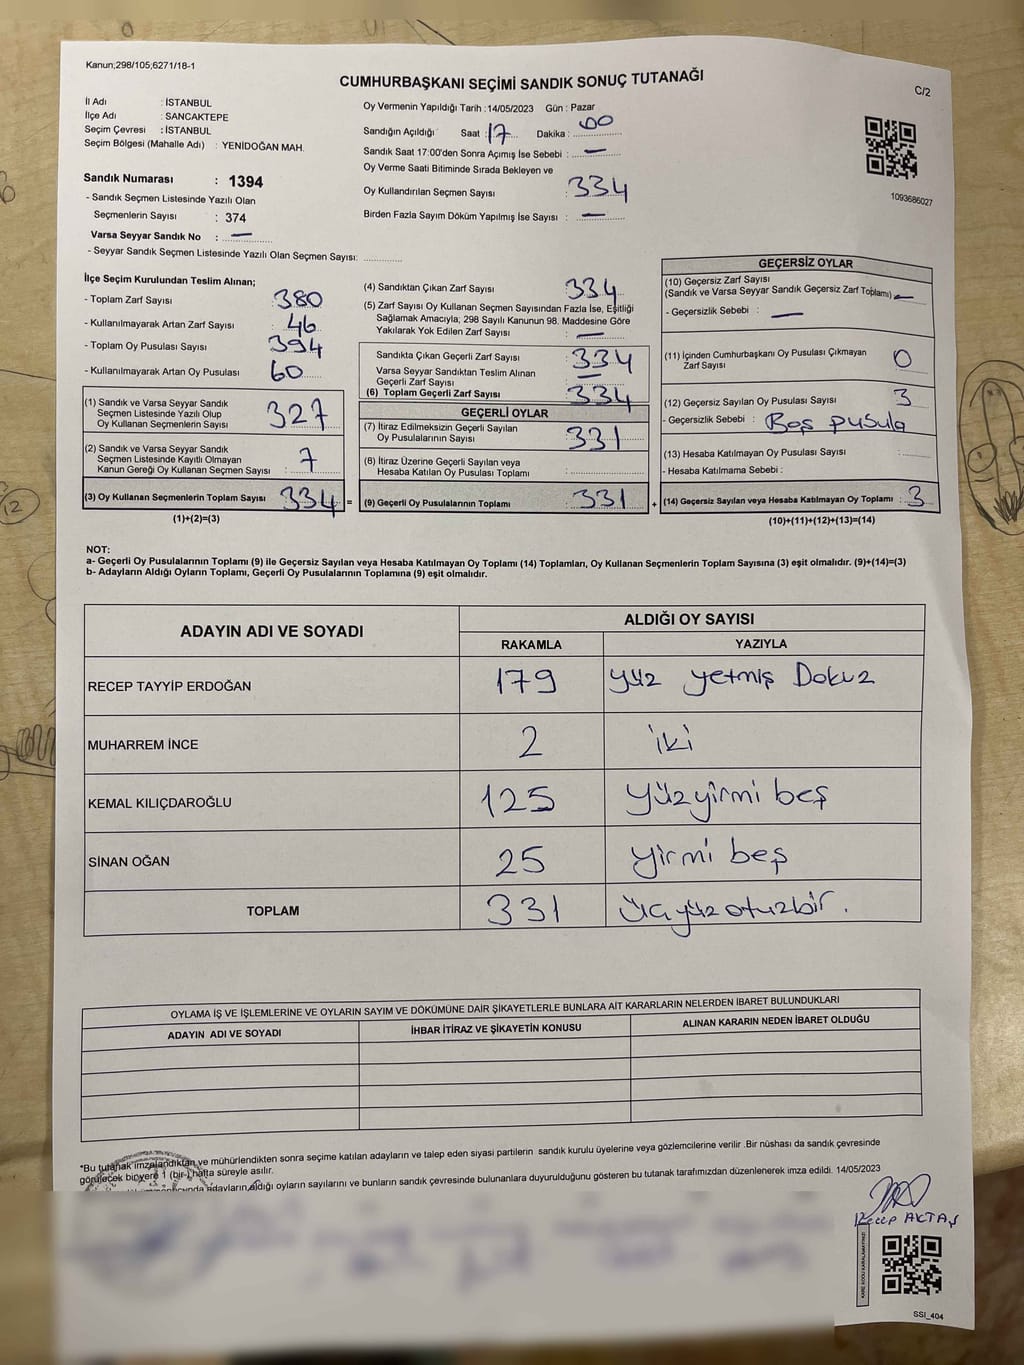 Kanun;298/105;6271/18-1
CUMHURBAŞKANI SEÇİMİ SANDIK SONUÇ TUTANAĞI
C/2
İl Adı : İSTANBUL
İlçe Adı : SANCAKTEPE
Seçim Çevresi : İSTANBUL
Seçim Bölgesi (Mahalle Adı) : YENİDOĞAN MAH.
Sandık Numarası : 1394
- Sandık Seçmen Listesinde Yazılı Olan
Seçmenlerin Sayısı : 374
Varsa Seyyar Sandık No : —
- Seyyar Sandık Seçmen Listesinde Yazılı Olan Seçmen Sayısı: ............
Oy Vermenin Yapıldığı Tarih : 14/05/2023 Gün : Pazar
Sandığın Açıldığı Saat : 17 Dakika : 00
Sandık Saat 17:00'den Sonra Açımış İse Sebebi : —
Oy Verme Saati Bitiminde Sırada Bekleyen ve
Oy Kullandırılan Seçmen Sayısı 334
Birden Fazla Sayım Döküm Yapılmış İse Sayısı : —
1093686027
İlçe Seçim Kurulundan Teslim Alınan;
- Toplam Zarf Sayısı 380
- Kullanılmayarak Artan Zarf Sayısı 46
- Toplam Oy Pusulası Sayısı 394
- Kullanılmayarak Artan Oy Pusulası 60
(1) Sandık ve Varsa Seyyar Sandık
Seçmen Listesinde Yazılı Olup
Oy Kullanan Seçmenlerin Sayısı 327
(2) Sandık ve Varsa Seyyar Sandık
Seçmen Listesinde Kayıtlı Olmayan
Kanun Gereği Oy Kullanan Seçmen Sayısı : 7
(3) Oy Kullanan Seçmenlerin Toplam Sayısı 334 =
(1)+(2)=(3)
(4) Sandıktan Çıkan Zarf Sayısı 334
(5) Zarf Sayısı Oy Kullanan Seçmen Sayısından Fazla İse, Eşitliği
Sağlamak Amacıyla; 298 Sayılı Kanunun 98. Maddesine Göre
Yakılarak Yok Edilen Zarf Sayısı : —
Sandıkta Çıkan Geçerli Zarf Sayısı 334
Varsa Seyyar Sandıktan Teslim Alınan
Geçerli Zarf Sayısı —
(6) Toplam Geçerli Zarf Sayısı 334
GEÇERLİ OYLAR
(7) İtiraz Edilmeksizin Geçerli Sayılan
Oy Pusulalarının Sayısı 331
(8) İtiraz Üzerine Geçerli Sayılan veya
Hesaba Katılan Oy Pusulası Toplamı
(9) Geçerli Oy Pusulalarının Toplamı : 331 +
GEÇERSİZ OYLAR
(10) Geçersiz Zarf Sayısı
(Sandık ve Varsa Seyyar Sandık Geçersiz Zarf Toplamı) —
- Geçersizlik Sebebi : —
(11) İçinden Cumhurbaşkanı Oy Pusulası Çıkmayan
Zarf Sayısı 0
(12) Geçersiz Sayılan Oy Pusulası Sayısı 3
- Geçersizlik Sebebi : Boş pusula
(13) Hesaba Katılmayan Oy Pusulası Sayısı
- Hesaba Katılmama Sebebi :
(14) Geçersiz Sayılan veya Hesaba Katılmayan Oy Toplamı : 3
(10)+(11)+(12)+(13)=(14)
NOT:
a- Geçerli Oy Pusulalarının Toplamı (9) ile Geçersiz Sayılan veya Hesaba Katılmayan Oy Toplamı (14) Toplamları, Oy Kullanan Seçmenlerin Toplam Sayısına (3) eşit olmalıdır. (9)+(14)=(3)
b- Adayların Aldığı Oyların Toplamı, Geçerli Oy Pusulalarının Toplamına (9) eşit olmalıdır.
ADAYIN ADI VE SOYADI ALDIĞI OY SAYISI
RAKAMLA YAZIYLA
RECEP TAYYİP ERDOĞAN 179 yüz yetmiş Dokuz
MUHARREM İNCE 2 iki
KEMAL KILIÇDAROĞLU 125 yüzyirmi beş
SİNAN OĞAN 25 yirmi beş
TOPLAM 331 üçyüz otuzbir.
OYLAMA İŞ VE İŞLEMLERİNE VE OYLARIN SAYIM VE DÖKÜMÜNE DAİR ŞİKAYETLERLE BUNLARA AİT KARARLARIN NELERDEN İBARET BULUNDUKLARI
ADAYIN ADI VE SOYADI İHBAR İTİRAZ VE ŞİKAYETİN KONUSU ALINAN KARARIN NEDEN İBARET OLDUĞU
*Bu tutanak imzalandıktan ve mühürlendikten sonra seçime katılan adayların ve talep eden siyasi partilerin sandık kurulu üyelerine veya gözlemcilerine verilir .Bir nüshası da sandık çevresinde
görülecek bir yere 1 (bir-) hafta süreyle asılır.
adayların aldığı oyların sayılarını ve bunların sandık çevresinde bulunanlara duyurulduğunu gösteren bu tutanak tarafımızdan düzenlenerek imza edildi. 14/05/2023
Recep AKTAŞ
KARE KODU KARALAMAYINIZ!
SSI_404
12